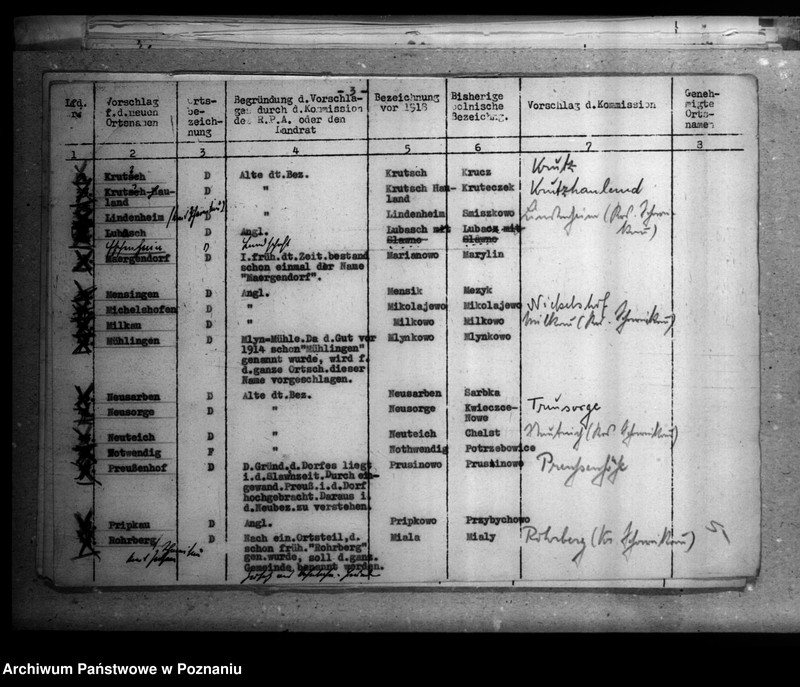 - 3 -
Lfd. Nr
Vorschlag f.d.neuen Ortsnamen
Orts-be-zeich-nung
Begründung d.Vorschlages durch d.Kommission des R.P.A. oder den Landrat
Bezeichnung vor 1918
Bisherige polnische Bezeichg.
Vorschlag d.Kommission
Geneh-migte Orts-namen
1 2 3 4 5 6 7 8
Krutsch D Alte dt.Bez. Krutsch Krucz
Krutsch-Hau- D " Krutsch Hau- Kruteczek Krutzhauland
land land
Lindenheim D " Lindenheim Smiszkowo Lindenheim
Lubasch D Angl. Lubasch mit Lubasz mit
Slawno Slawno
Maergendorf D I.früh.dt.Zeit.bestand Marianowo Marylin
schon einmal der Name
"Maergendorf".
Mensingen D Angl. Mensik Mezyk
Michelshofen D " Mikolajewo Mikolajewo
Milkau D " Milkowo Milkowo Milkau
Mühlingen D Mlyn=Mühle.Da d.Gut vor Mlynkowo Mlynkowo
1914 schon"Mühlingen"
genannt wurde, wird f.
d.ganze Ortsch.dieser
Name vorgeschlagen.
Neusarben D Alte dt.Bez. Neusarben Sarbka
Neusorge D " Neusorge Kwiecze- Neusorge
Nowe
Neuteich D " Neuteich Chelst Neuteich
Notwendig F " Nothwendig Potrzebowice
Preußenhof D D.Gründ.d.Dorfes liegt Prusinowo Prusinowo
i.d.Slawnzeit.Durch ein-
gewand.Preuß.i.d.Dorf
hochgebracht.Daraus i.
d.Neubez.zu verstehen.
Pripkau D Angl. Pripkowo Przybychowo
Rohrberg D Nach ein.Ortsteil,d. Miala Mialy Rohrberg
schon früh."Rohrberg"
gen.wurde, soll d.ganz.
Gemeinde benannt werden.
Archiwum Państwowe w Poznaniu